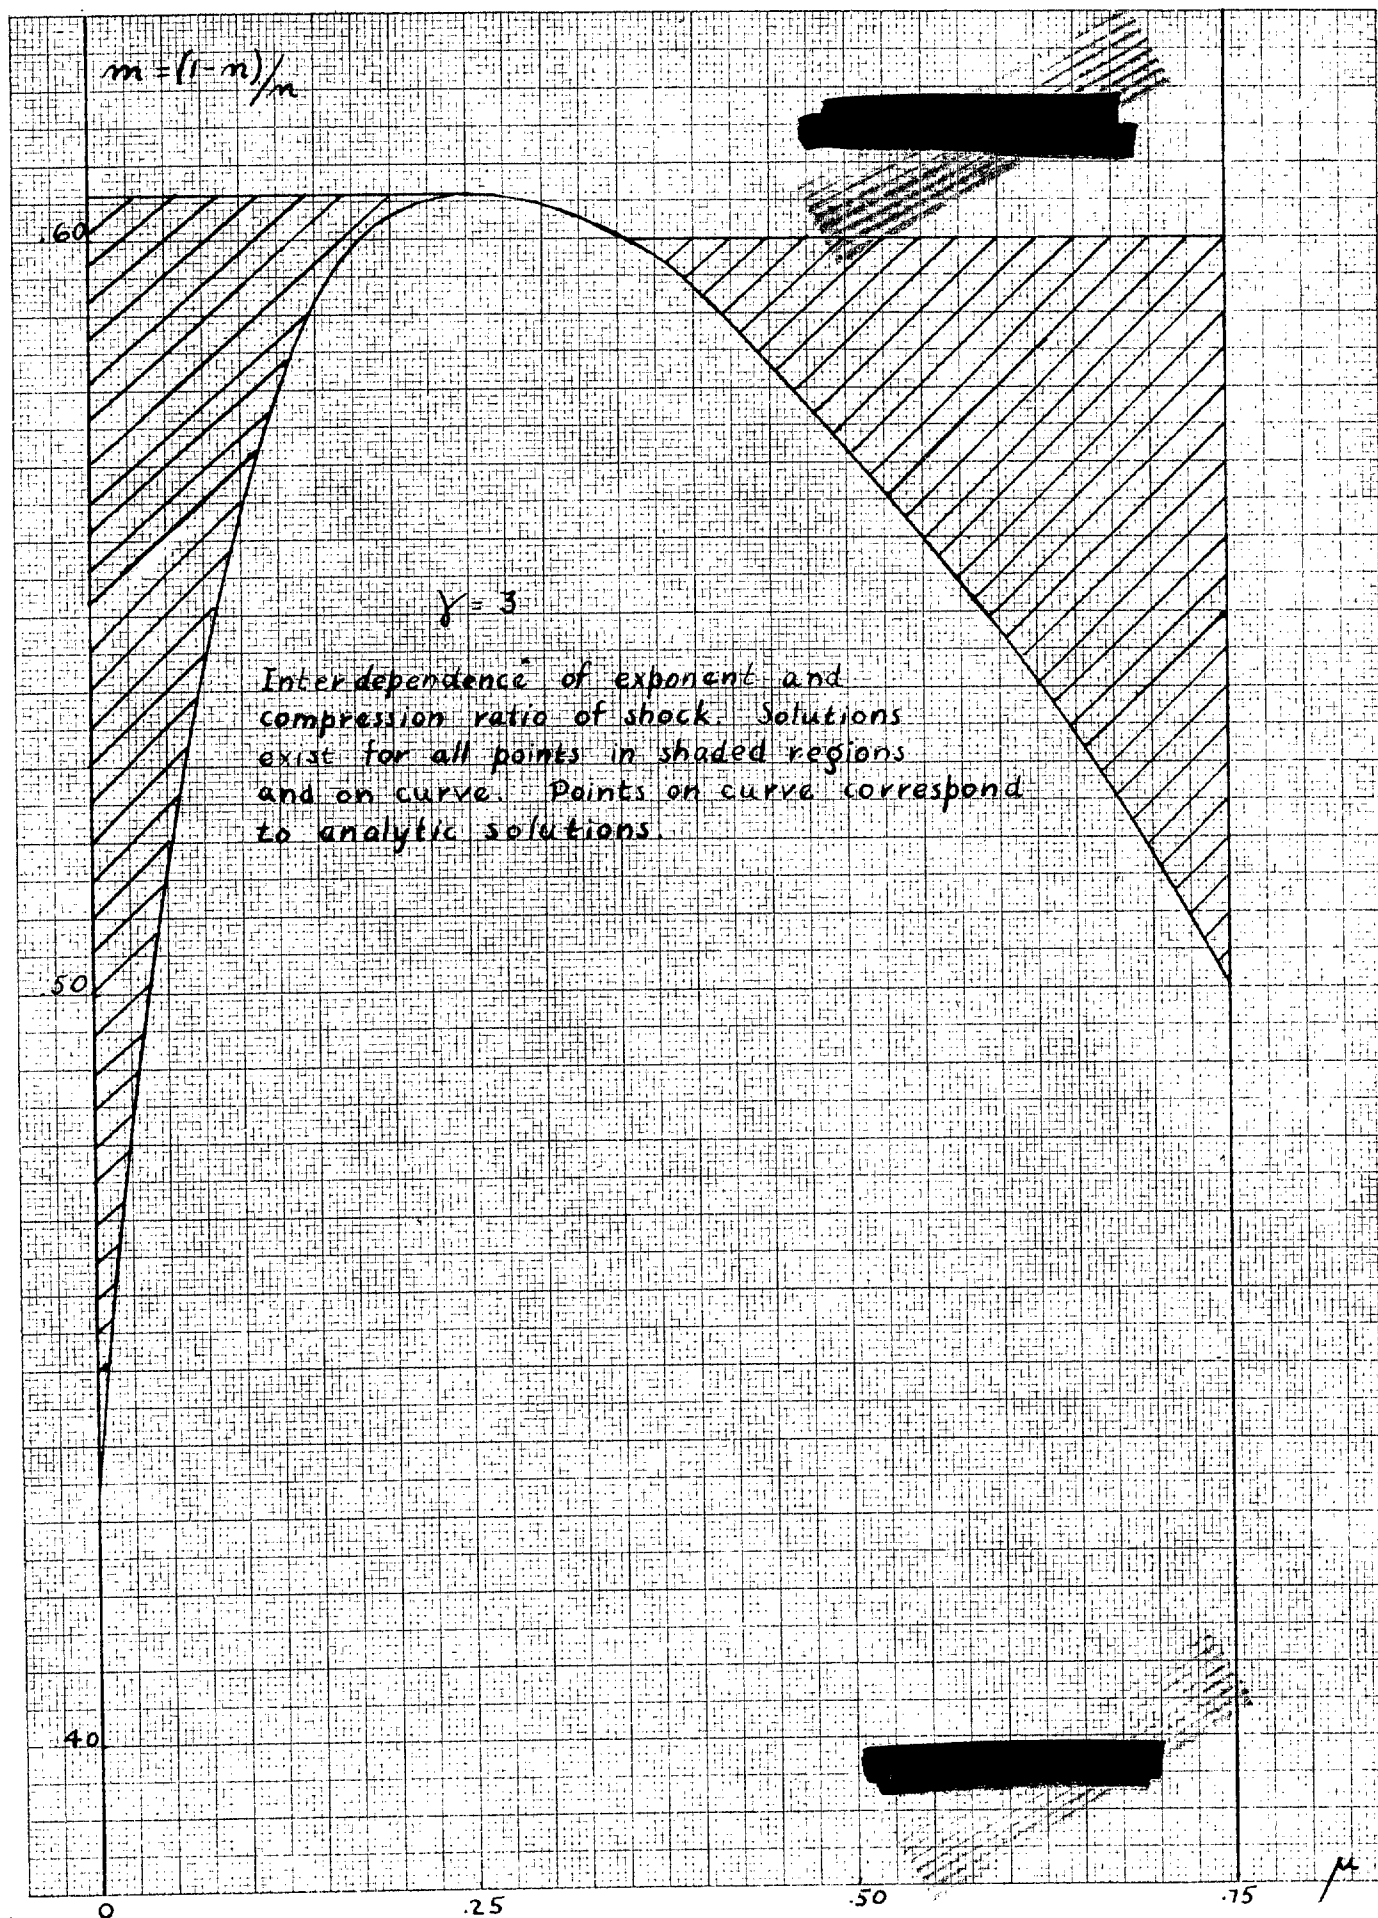 m = (1-n)/n
.60
γ = 3
Interdependence of exponent and
compression ratio of shock. Solutions
exist for all points in shaded regions
and on curve. Points on curve correspond
to analytic solutions.
.50
40
μ
0 .25 .50 .75